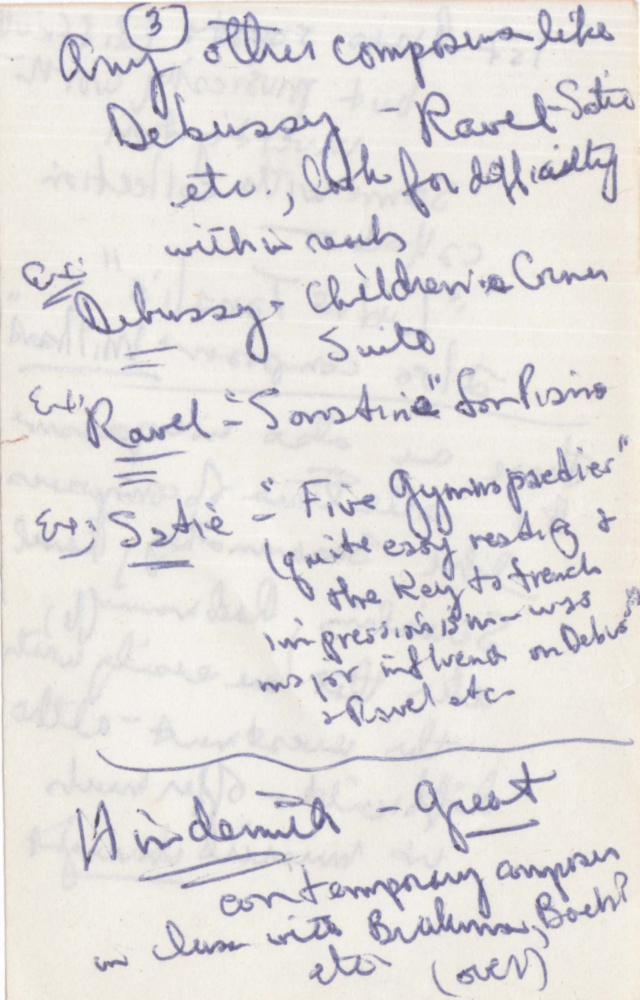 3
Any other composers like
Debussy - Ravel - Satie
etc., look for difficulty
within reach
Ex: Debussy - Children's Corner
Suite
Ex: Ravel - "Sonatine" for Piano
Ex: Satie - "Five Gymnopaedies"
(quite easy reading &
the key to French
impressionism - was
major influence on Debus
& Ravel etc
Hindemith - Great
contemporary composer
in class with Brahms, Bach
etc (over)